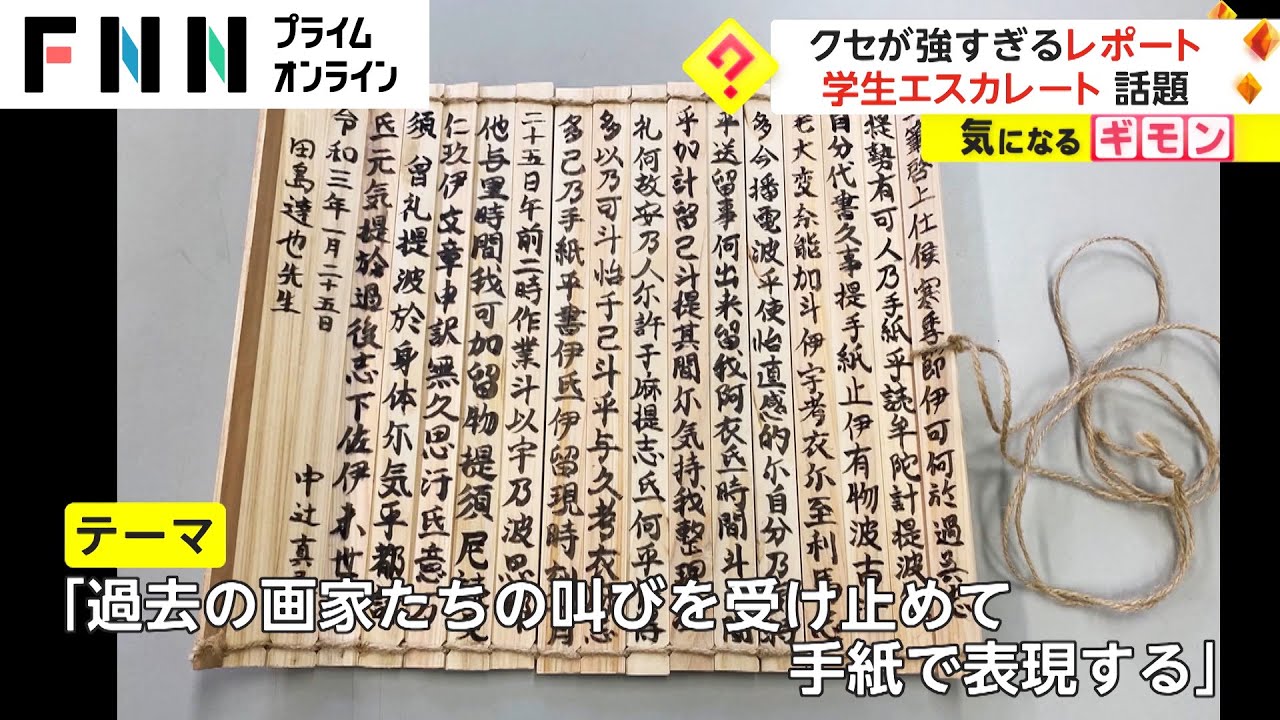 FNN プライム
オンライン
クセが強すぎるレポート
学生エスカレート 話題
気になるギモン
啓上仕侯寒季節伊可何於過
提勢有可人乃手紙乎読牟陀計提波
自分代書久事提手紙止伊有物波古
大変奈能加斗伊宇考衣尓至利氐
多今播電波乎使怡直感的尓自分乃
乎送留事何出来留我阿衣氐時間斗
乎加計留己斗提其間尓気持我整理
礼何故安乃人尓許于麻提志氐何乎
多以乃可斗怡于己斗乎与久考衣志
多己乃手紙乎書伊氐伊留現時
二十五日午前二時作業斗以宇乃波思
他与里時間我可加留物提須 尼
仁玖伊文章申訳無久思汙氐意
須 曽礼提波於身体尓気乎都
氐元気提於過後志下佐伊 末世
令和三年一月二十五日
田島達也先生
中辻真
テーマ
「過去の画家たちの叫びを受け止めて
手紙で表現する」